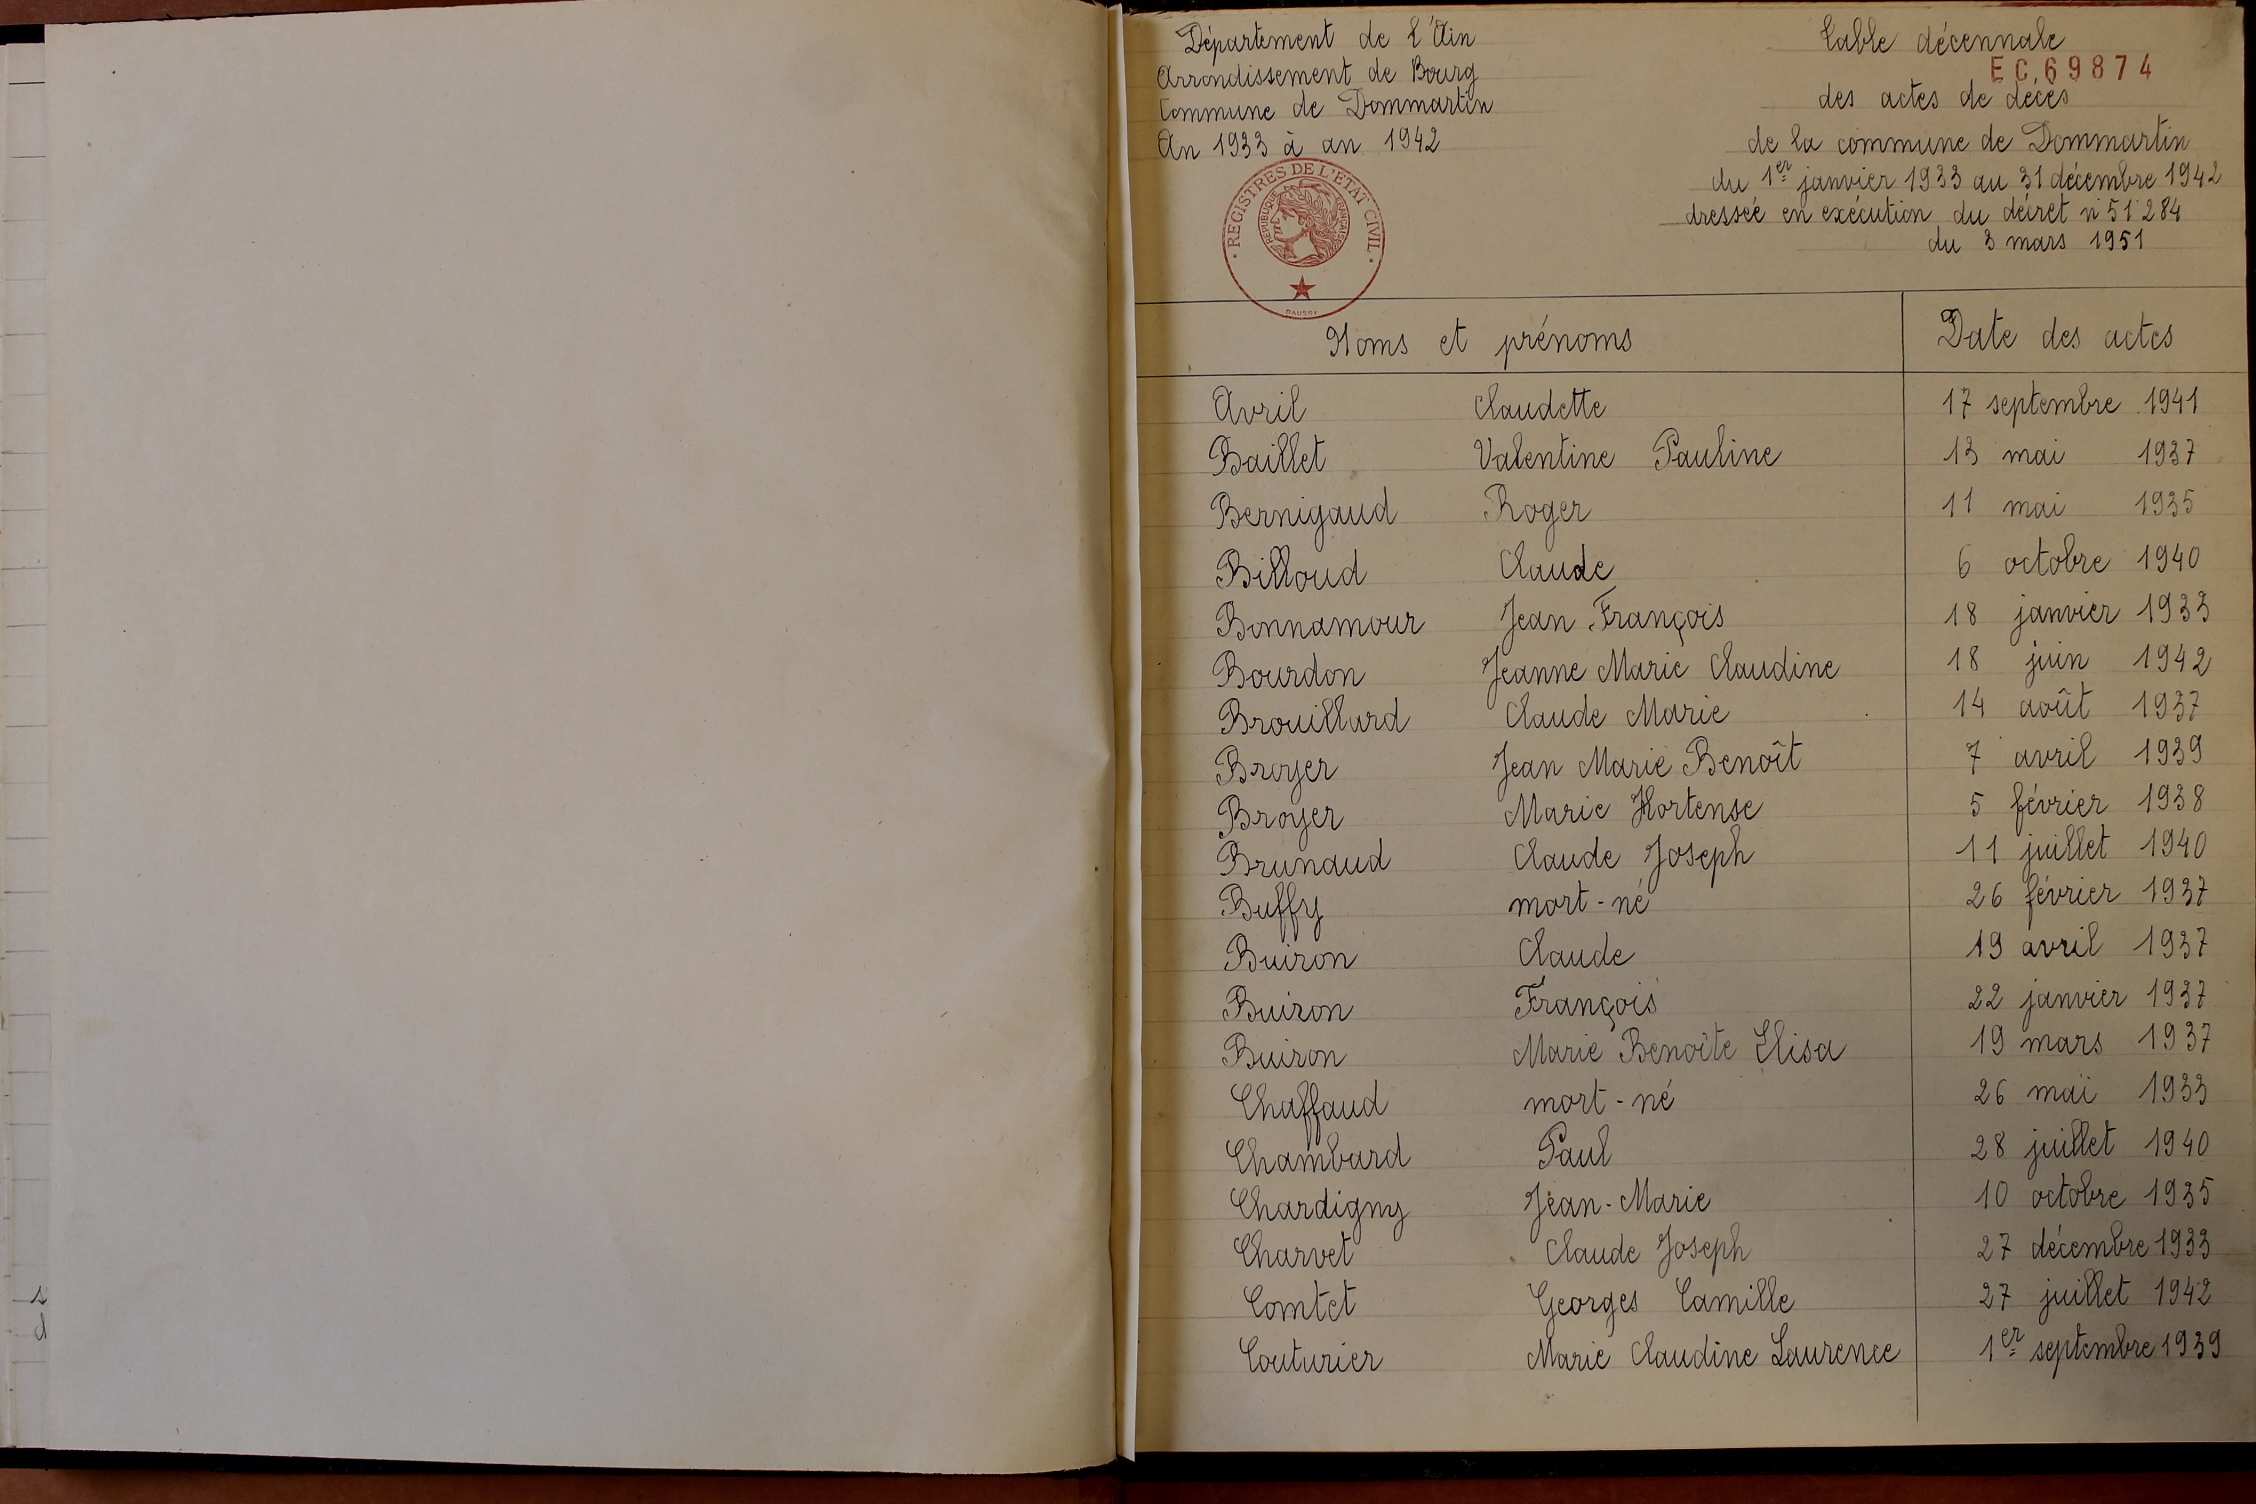 Département de l'Ain
Arrondissement de Bourg
Commune de Dommartin
An 1933 à an 1942
REGISTRES DE L'ETAT CIVIL
REPUBLIQUE FRANÇAISE
Table décennale
EC.69874
des actes de décès
de la commune de Dommartin
du 1er janvier 1933 au 31 décembre 1942
dressée en exécution du décret n° 51 284
du 3 mars 1951
Noms et prénoms Date des actes
Avril Claudette 17 septembre 1941
Baillet Valentine Pauline 13 mai 1937
Bernigaud Roger 11 mai 1935
Billoud Claude 6 octobre 1940
Bonnamour Jean François 18 janvier 1933
Bourdon Jeanne Marie Claudine 18 juin 1942
Brouillard Claude Marie 14 août 1937
Broyer Jean Marie Benoît 7 avril 1939
Broyer Marie Hortense 5 février 1938
Brunaud Claude Joseph 11 juillet 1940
Buffy mort-né 26 février 1937
Buiron Claude 19 avril 1937
Buiron François 22 janvier 1937
Buiron Marie Benoîte Elisa 19 mars 1937
Chaffaud mort-né 26 mai 1933
Chambard Paul 28 juillet 1940
Chardigny Jean-Marie 10 octobre 1935
Charvet Claude Joseph 27 décembre 1933
Comtet Georges Camille 27 juillet 1942
Couturier Marie Claudine Laurence 1er septembre 1939